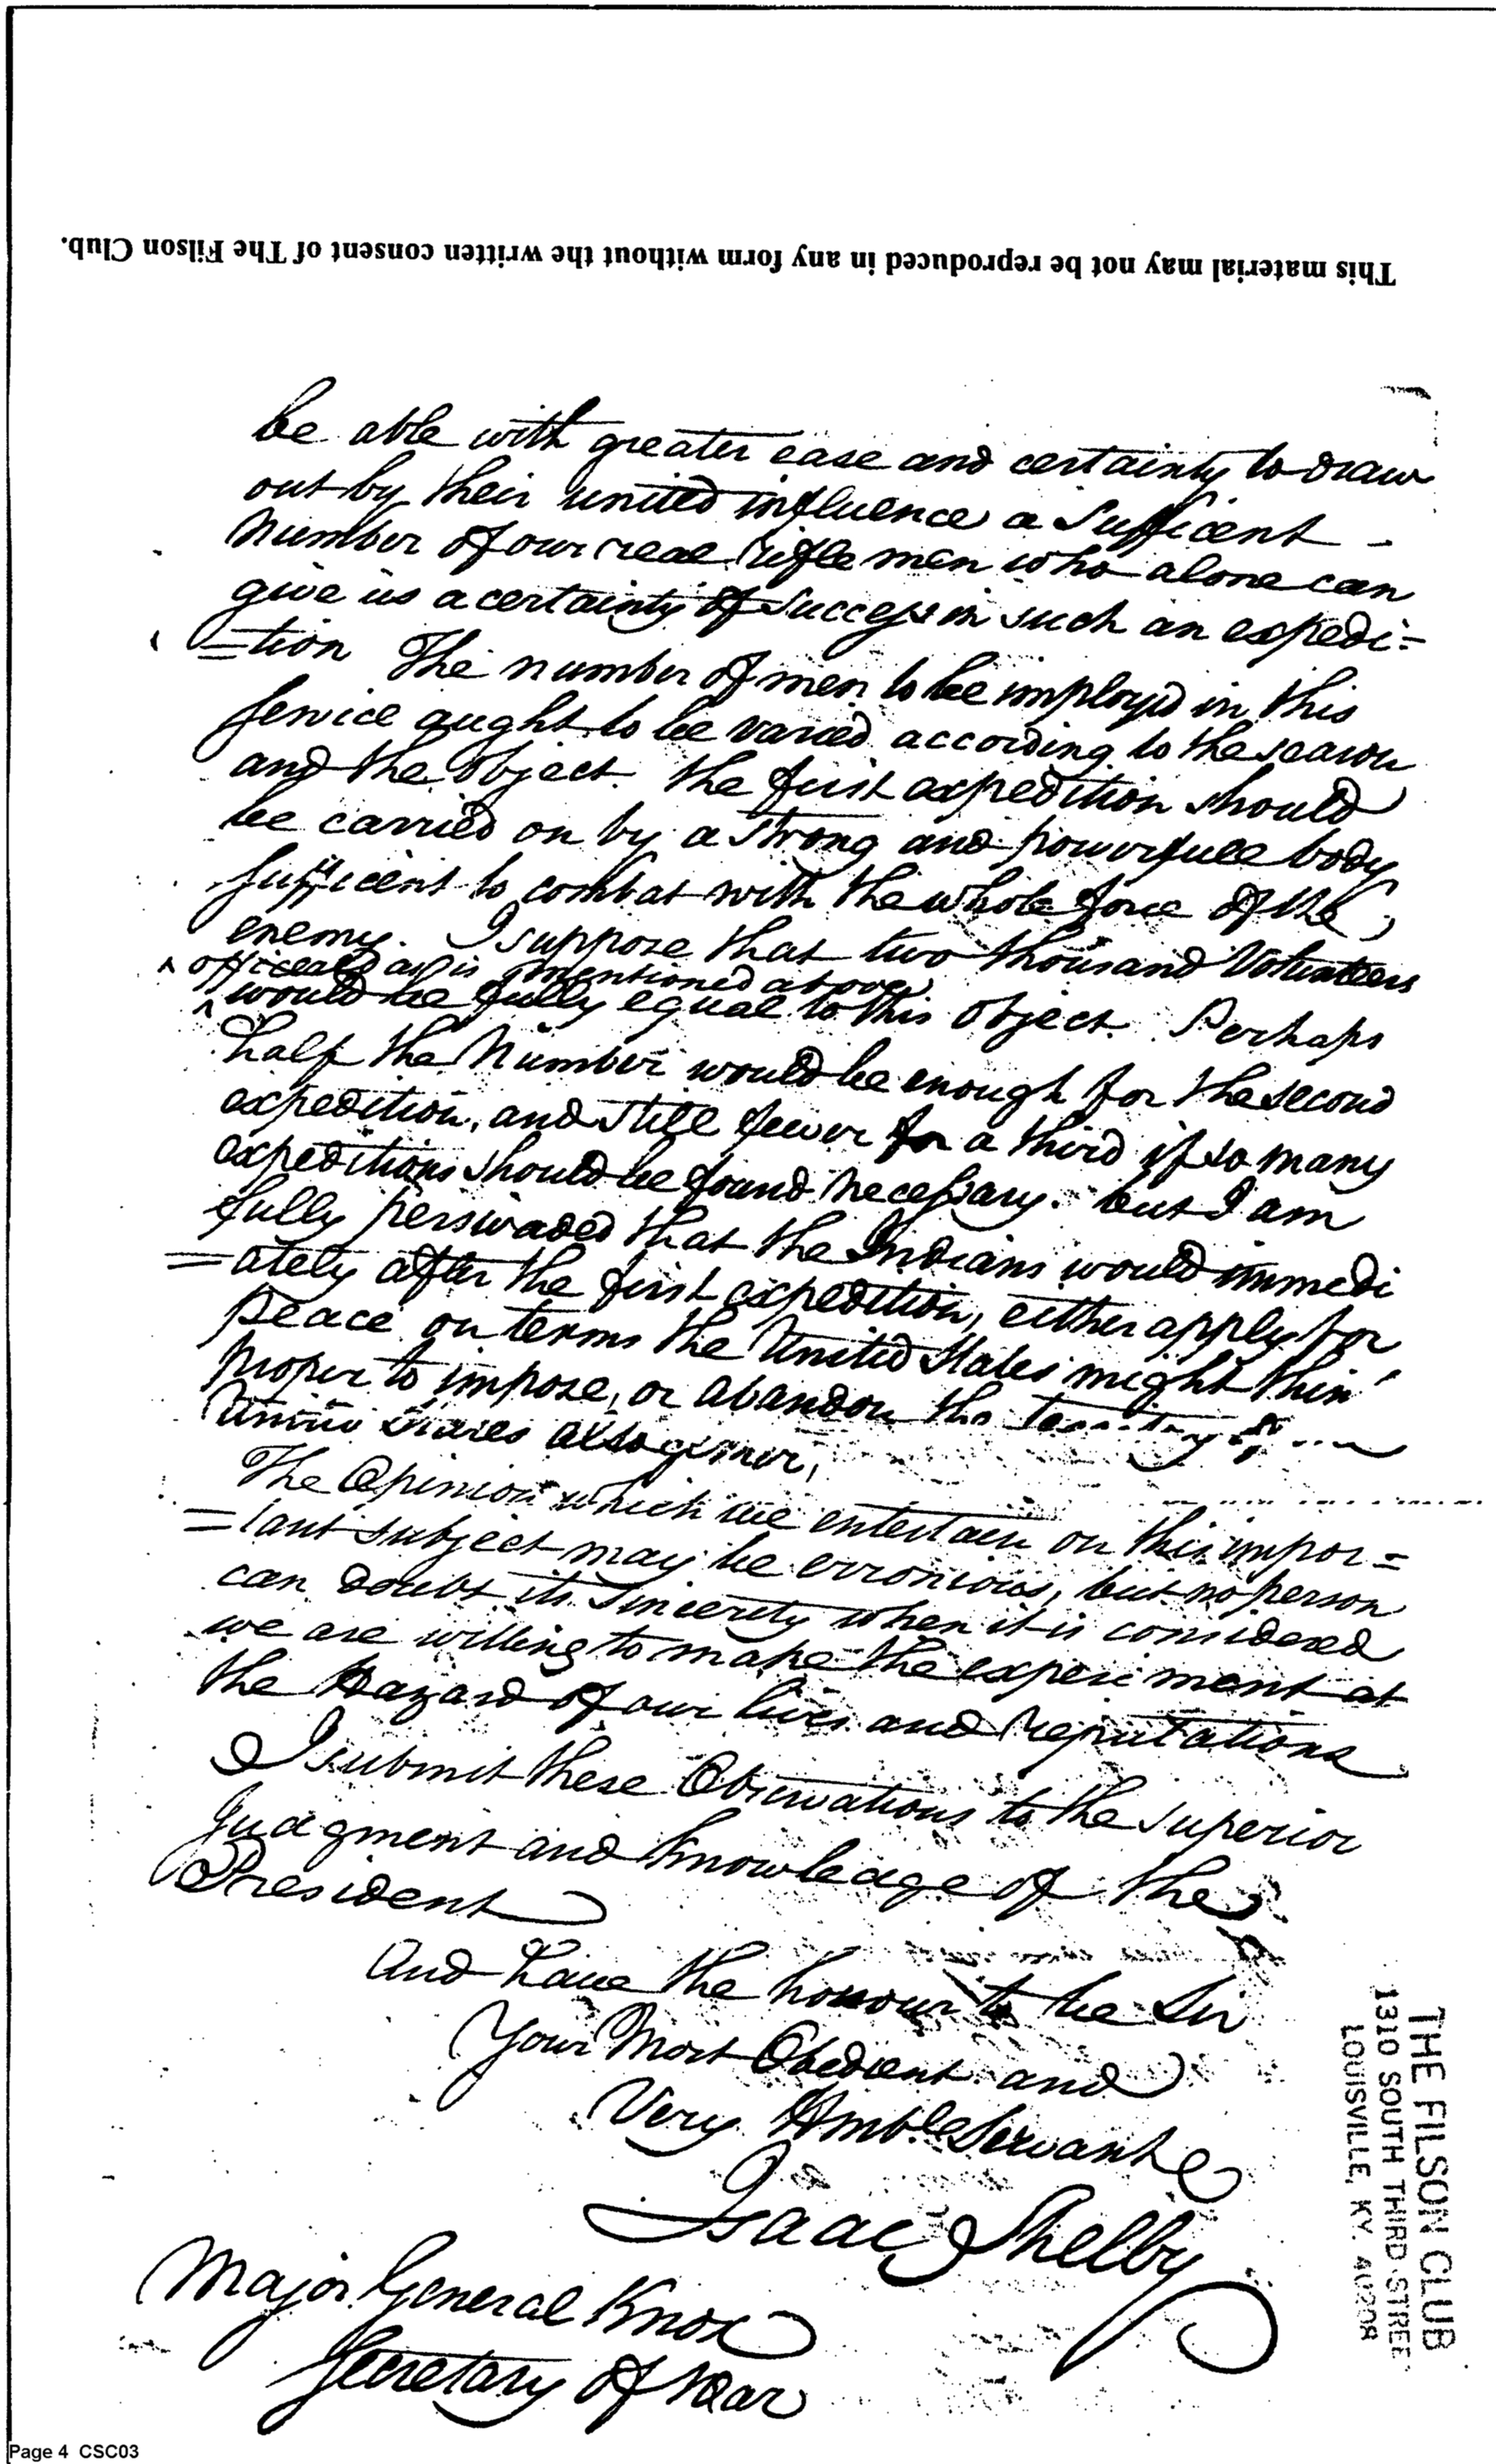 This material may not be reproduced in any form without the written consent of The Filson Club.
be able with greater ease and certainty to draw
out by their united influence a Sufficent -
Number of our real Rifle men who alone can
give us a certainty of Success in such an expedi=
=tion The number of men to be imployd in this
Service aught to be varied according to the season
and the Object. the first expedition should
be carried on by a strong and powerfull body
Sufficent to combat with the whole force of the
enemy. I suppose that two thousand Volunteers
^ officeald as is mentioned above
^ would be fully equal to this object. Perhaps
half the Number would be enough for the second
expedition, and still fewer for a third if so many
expeditions should be found Necessary. but I am
fully perswaded that the Indians would immedi
=ately after the first expedition, either apply for
peace on terms the United States might thin
proper to impose, or abandon the
United States altogether,
The Opinion which we entertain on this impor=
=tant subject may be erronious, but no person
can doubt its Sincerity when it is considered
we are willing to make the experiment at
the Hazard of our lives and Reputations
I submit these Observations to the Superior
Judgment and Knowledge of the
President
And have the honour to be Sir
Your Most Obedient and
Very Hmble Servant
Isaac Shelby
Major General Knox
Secretary of War
THE FILSON CLUB
1310 SOUTH THIRD STREE
LOUISVILLE, KY. 40208
Page 4 CSC03